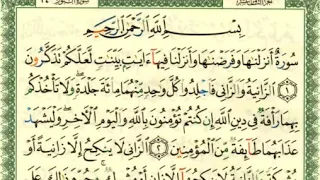 بِسْمِ ٱللَّهِ ٱلرَّحْمَٰنِ ٱلرَّحِيمِ
سُورَةٌ أَنزَلْنَٰهَا وَفَرَضْنَٰهَا وَأَنزَلْنَا فِيهَآ ءَايَٰتٍۭ بَيِّنَٰتٍ لَّعَلَّكُمْ تَذَكَّرُونَ
١ ٱلزَّانِيَةُ وَٱلزَّانِى فَٱجْلِدُوا۟ كُلَّ وَٰحِدٍ مِّنْهُمَا مِا۟ئَةَ جَلْدَةٍ وَلَا تَأْخُذْكُم
بِهِمَا رَأْفَةٌ فِى دِينِ ٱللَّهِ إِن كُنتُمْ تُؤْمِنُونَ بِٱللَّهِ وَٱلْيَوْمِ ٱلْءَاخِرِ وَلْيَشْهَدْ
عَذَابَهُمَا طَآئِفَةٌ مِّنَ ٱلْمُؤْمِنِينَ ٢ ٱلزَّانِى لَا يَنكِحُ إِلَّا زَانِيَةً أَوْ